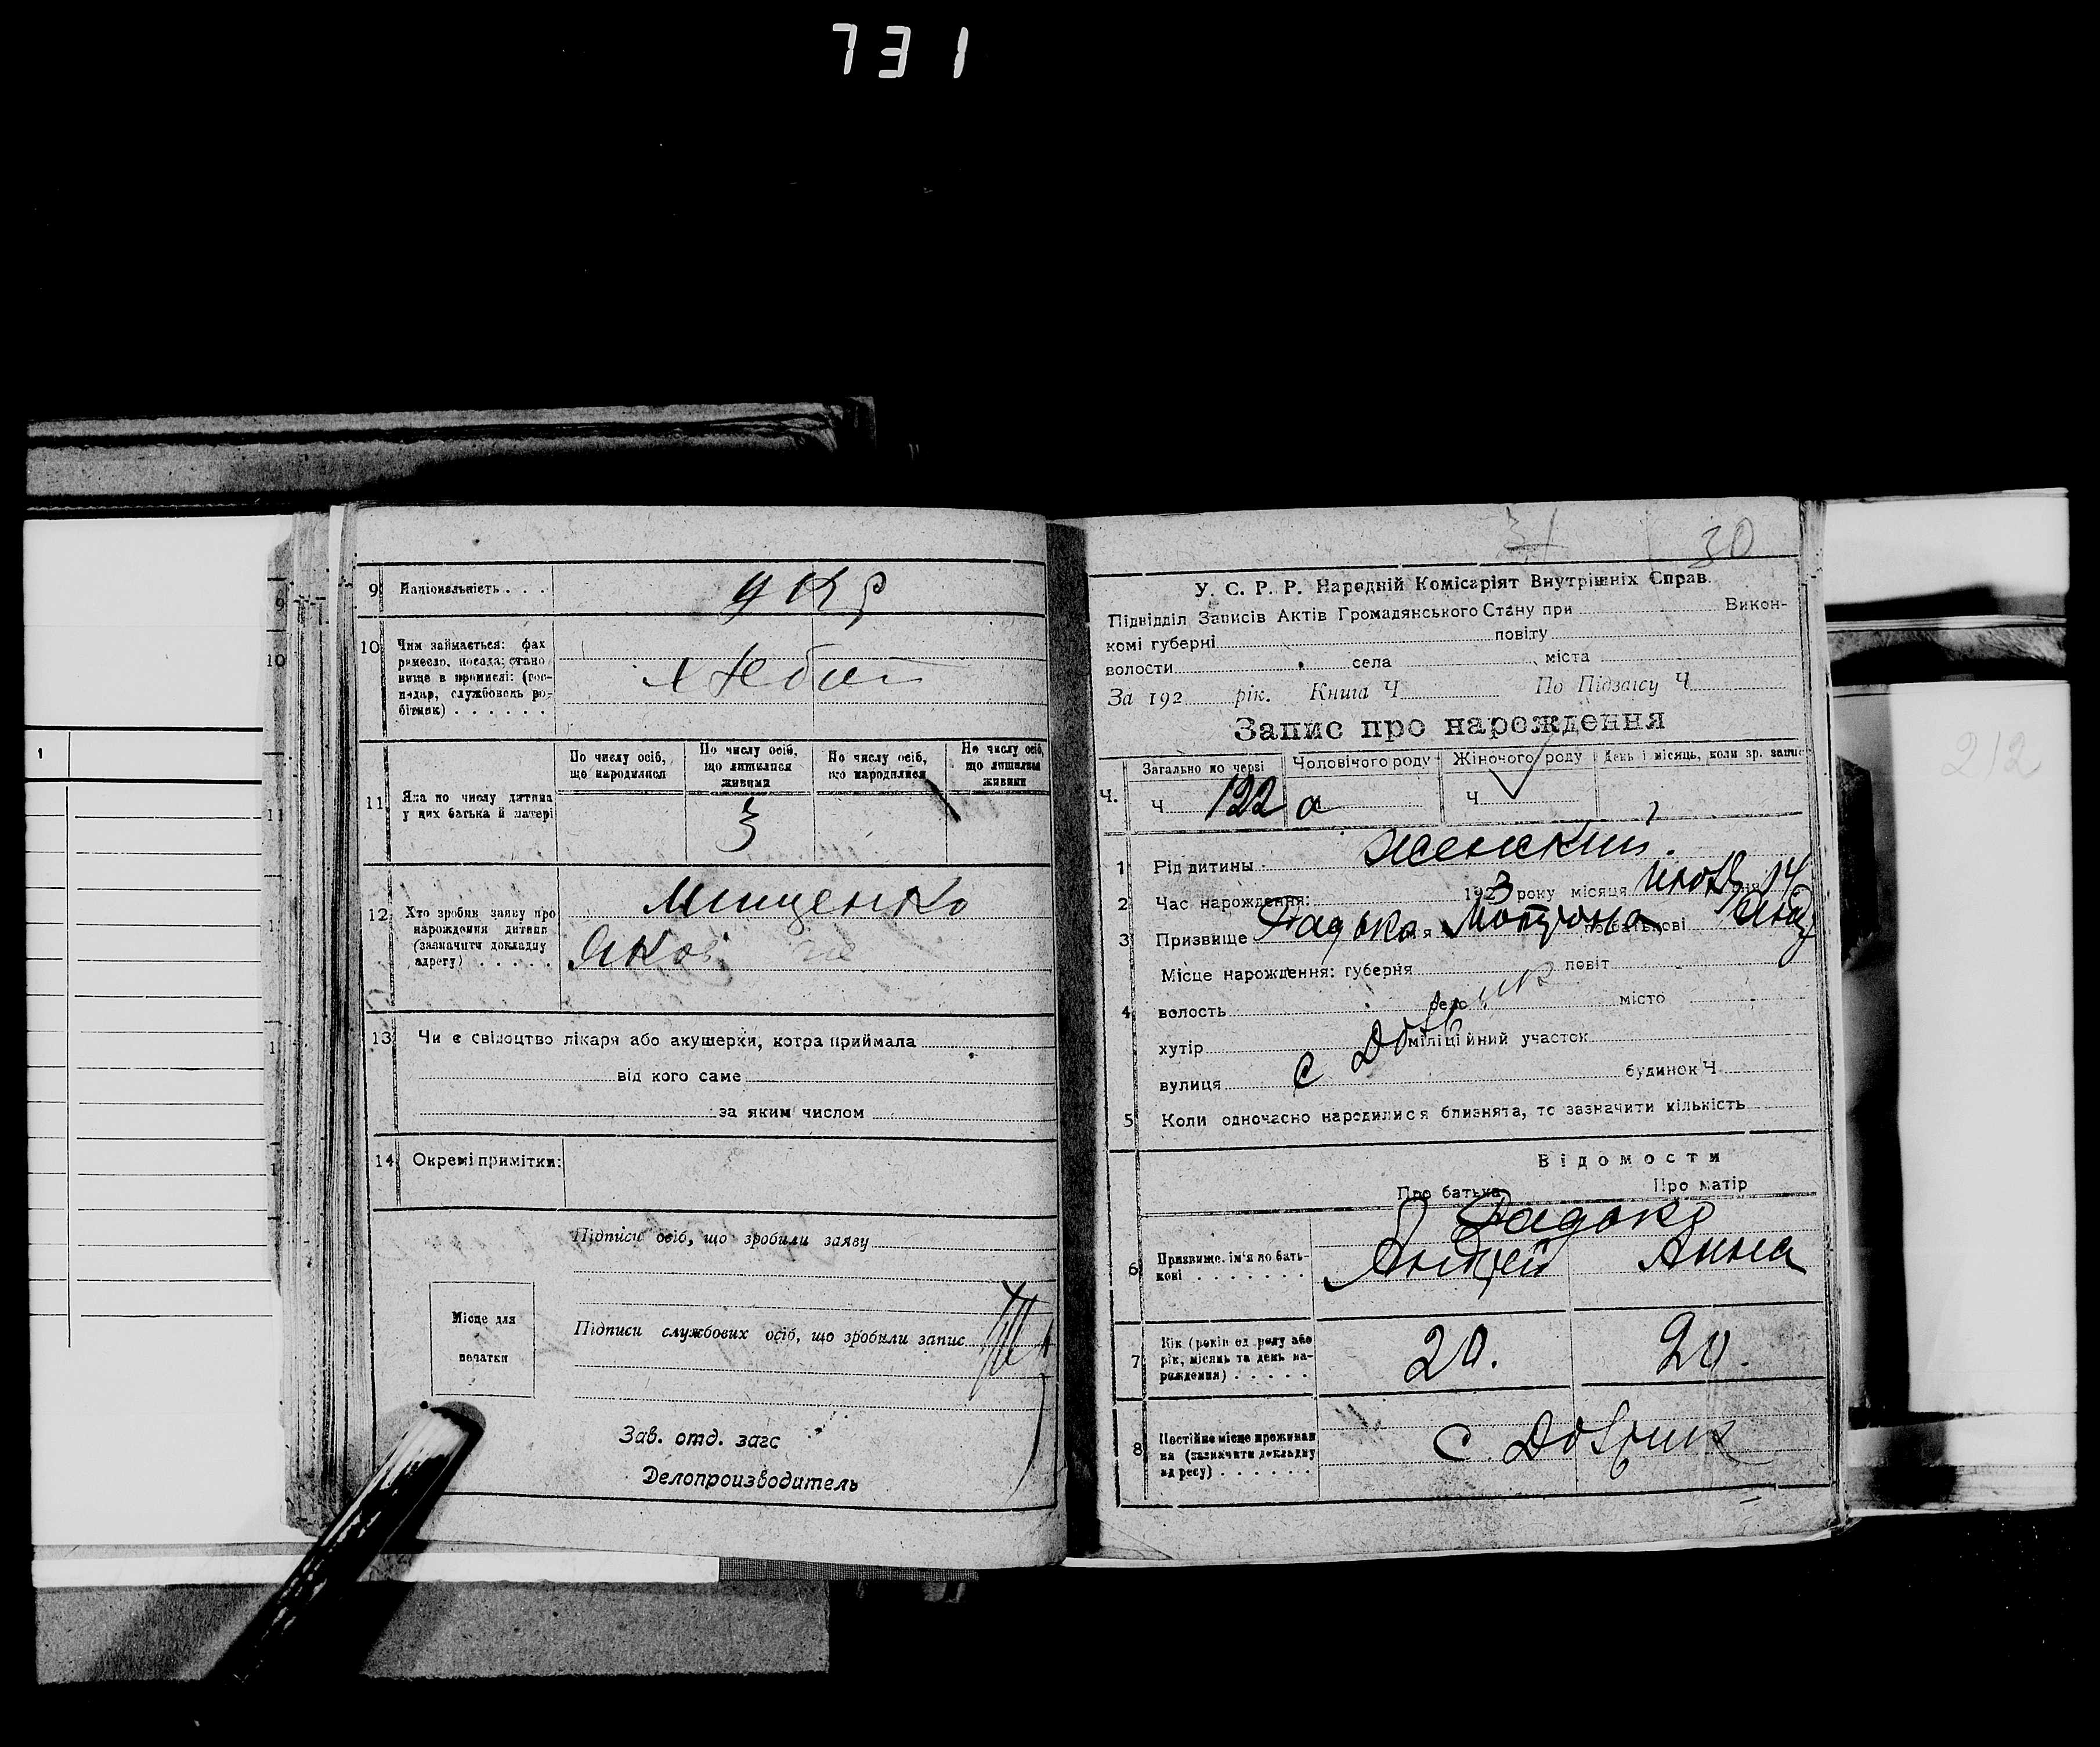 731
9 Національність . . .
укр
10 Чим займається: фах
ремесло, посада; стано-
вище в промислі: (гос-
подар, службовець ро-
бітник) . . . . . .
хлебоп
11 Яка по числу дитина
у цих батька й матері
По числу осіб,
що народилися
По числу осіб,
що лишилися
живими
По числу осіб,
що народилися
По числу осіб,
що лишилися
живими
3
12 Хто зробив заяву про
нарождення дитини
(зазначити докладну
адресу) . . . . .
Мищенко
Яков
13 Чи є свідоцтво лікаря або акушерки, котра приймала
від кого саме
за яким числом
14 Окремі примітки:
Підписи осіб, що зробили заяву
Місце для
печатки
Підписи службових осіб, що зробили запис
Зав. отд. загс
Делопроизводитель
31 30
У. С. Р. Р. Народній Комісаріят Внутрішніх Справ.
Підвідділ Записів Актів Громадянського Стану при Викон-
комі губерні повіту
волости села міста
За 192 рік. Книга Ч По Підзагсу Ч
Запис про нарождення
Ч. Загально по черзі Чоловічого роду Жіночого роду День і місяць, коли зр. запис
Ч 122 а Ч
1 Рід дитини женский
2 Час нарождення: 1923 року місяця 14
3 Призвище по батькові
Місце нарождення: губерня повіт
4 волость село місто
хутір міліційний участок
вулиця будинок Ч
с
5 Коли одночасно народилися близнята, то зазначити кількість
Відомости
Про батька Про матір
6 Призвище, ім'я по бать-
кові . . . . . . .
Андрей Анна
7 Вік (років од роду або
рік, місяць та день на-
рождення) . . . . .
20. 20.
8 Постійне місце проживан
ня (зазначити докладну
адресу) . . . . . .
с. Добрик
212